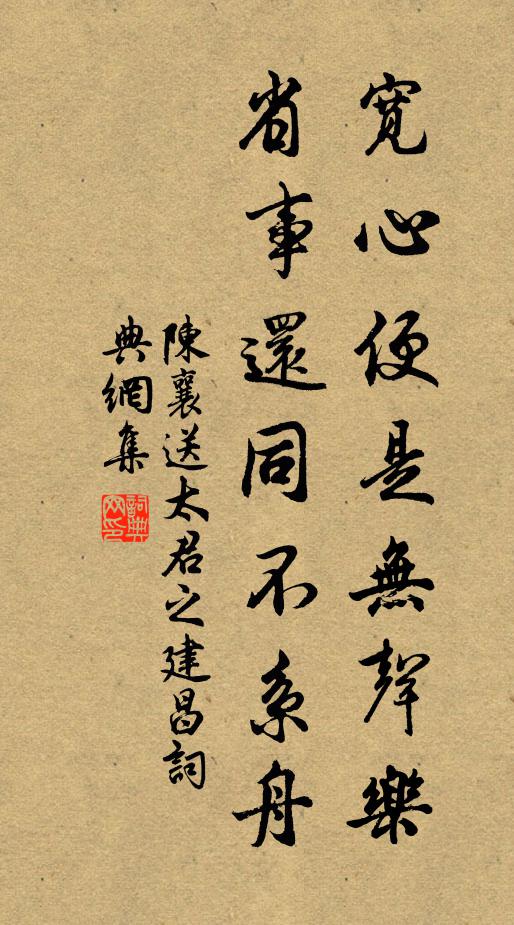 寬心便是無聲樂
省事還同不系舟
陳襄送太君之建昌詞
典網集
詞典網印